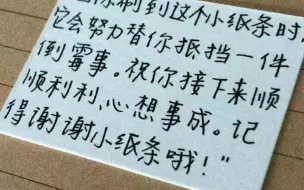 你刷到这个小纸条时，
它会努力替你抵挡一件
倒霉事。祝你接下来顺
顺利利，心想事成。记
得谢谢小纸条哦！"